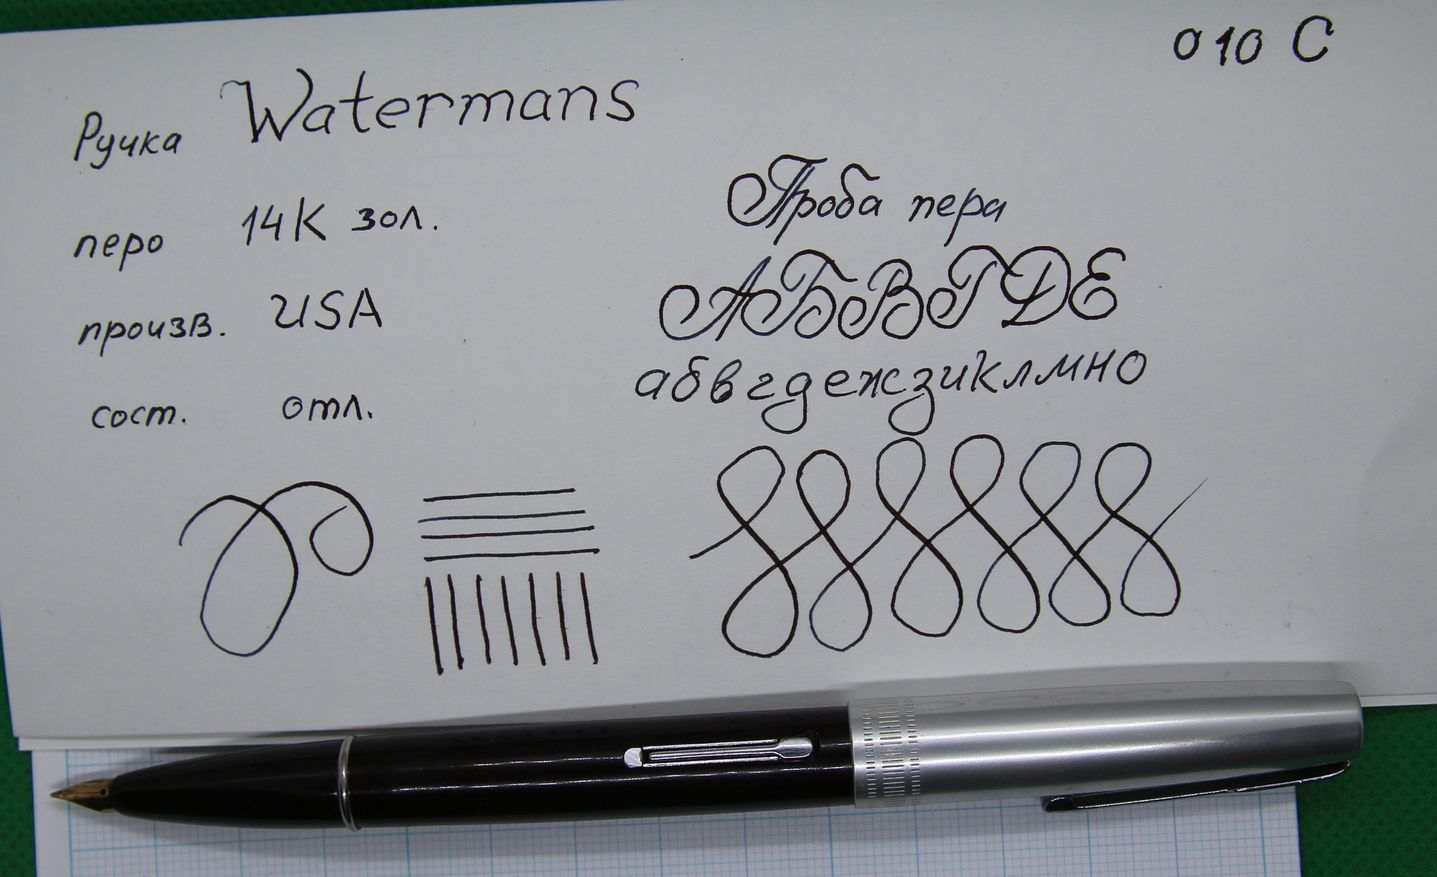 010 C
Ручка Watermans
перо 14K зол.
произв. USA
сост. отл.
Проба пера
АБВГДЕ
абвгдежзиклмно